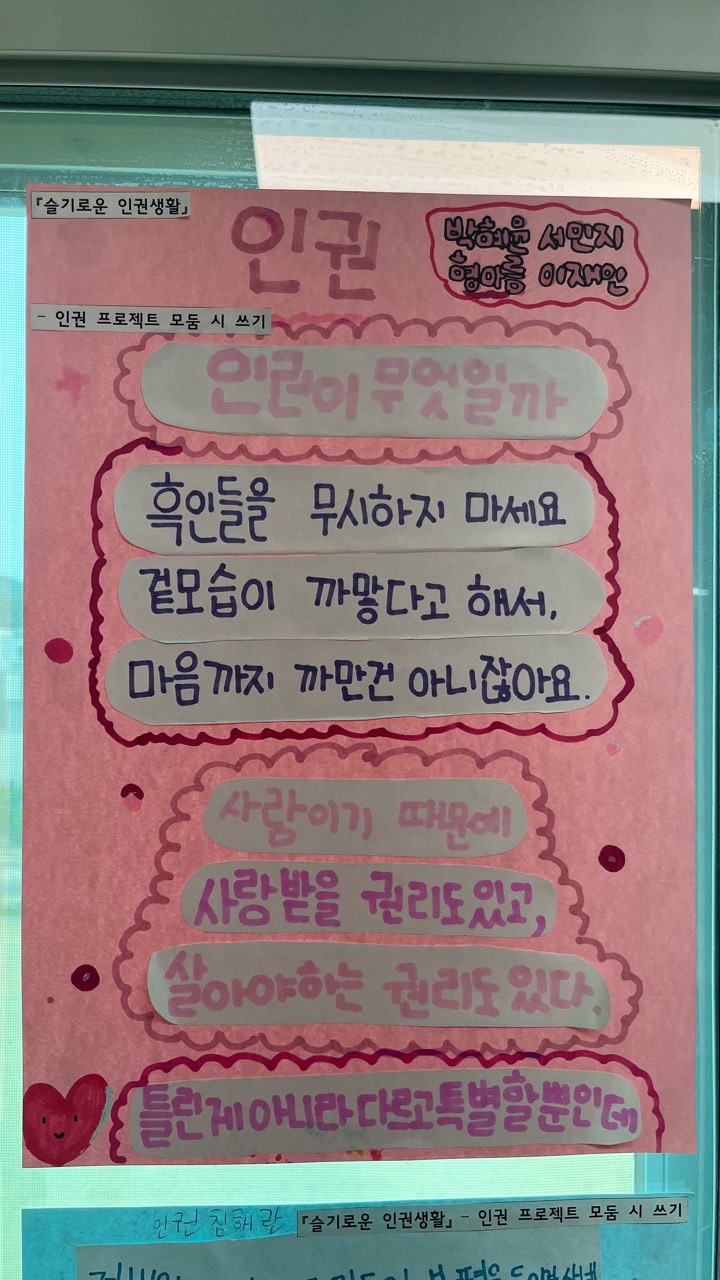 『슬기로운 인권생활』
인권
박혜윤 서민지
형아름 이재인
- 인권 프로젝트 모둠 시 쓰기
인권이 무엇일까
흑인들을 무시하지 마세요
겉모습이 까맣다고 해서,
마음까지 까만건 아니잖아요.
사람이기 때문에
사랑받을 권리도있고,
살아야하는 권리도있다.
틀린게아니라다르고특별할뿐인데
인권침해란
『슬기로운 인권생활』 - 인권 프로젝트 모둠 시 쓰기